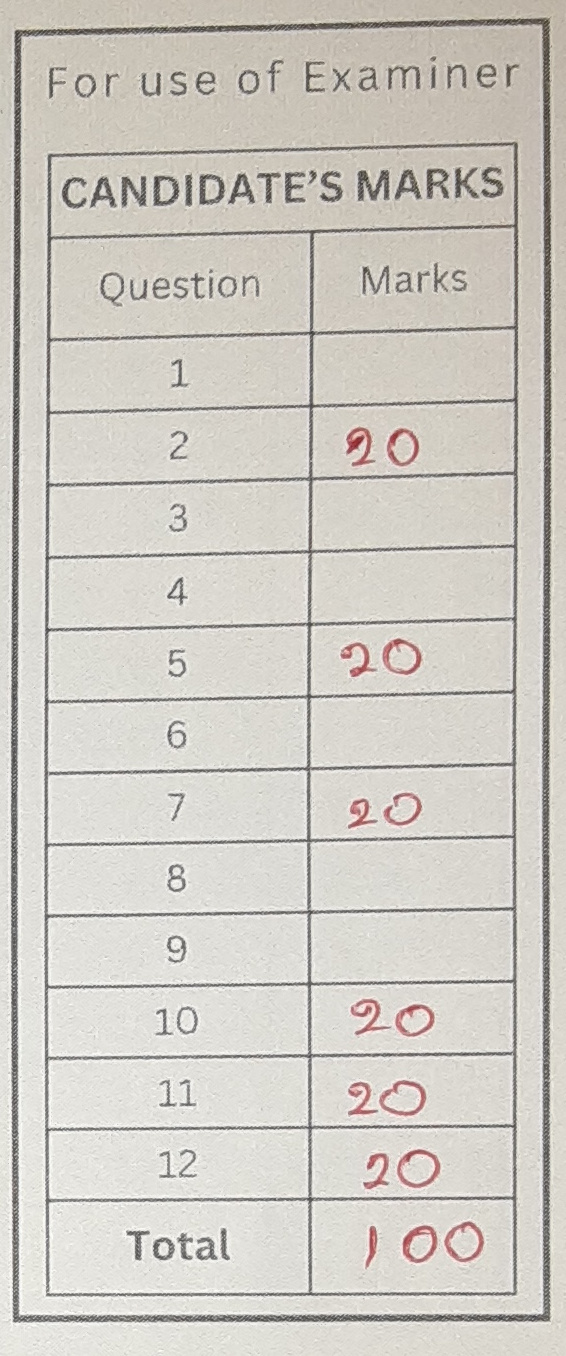 For use of Examiner
CANDIDATE'S MARKS
Question Marks
1
2 20
3
4
5 20
6
7 20
8
9
10 20
11 20
12 20
Total 100